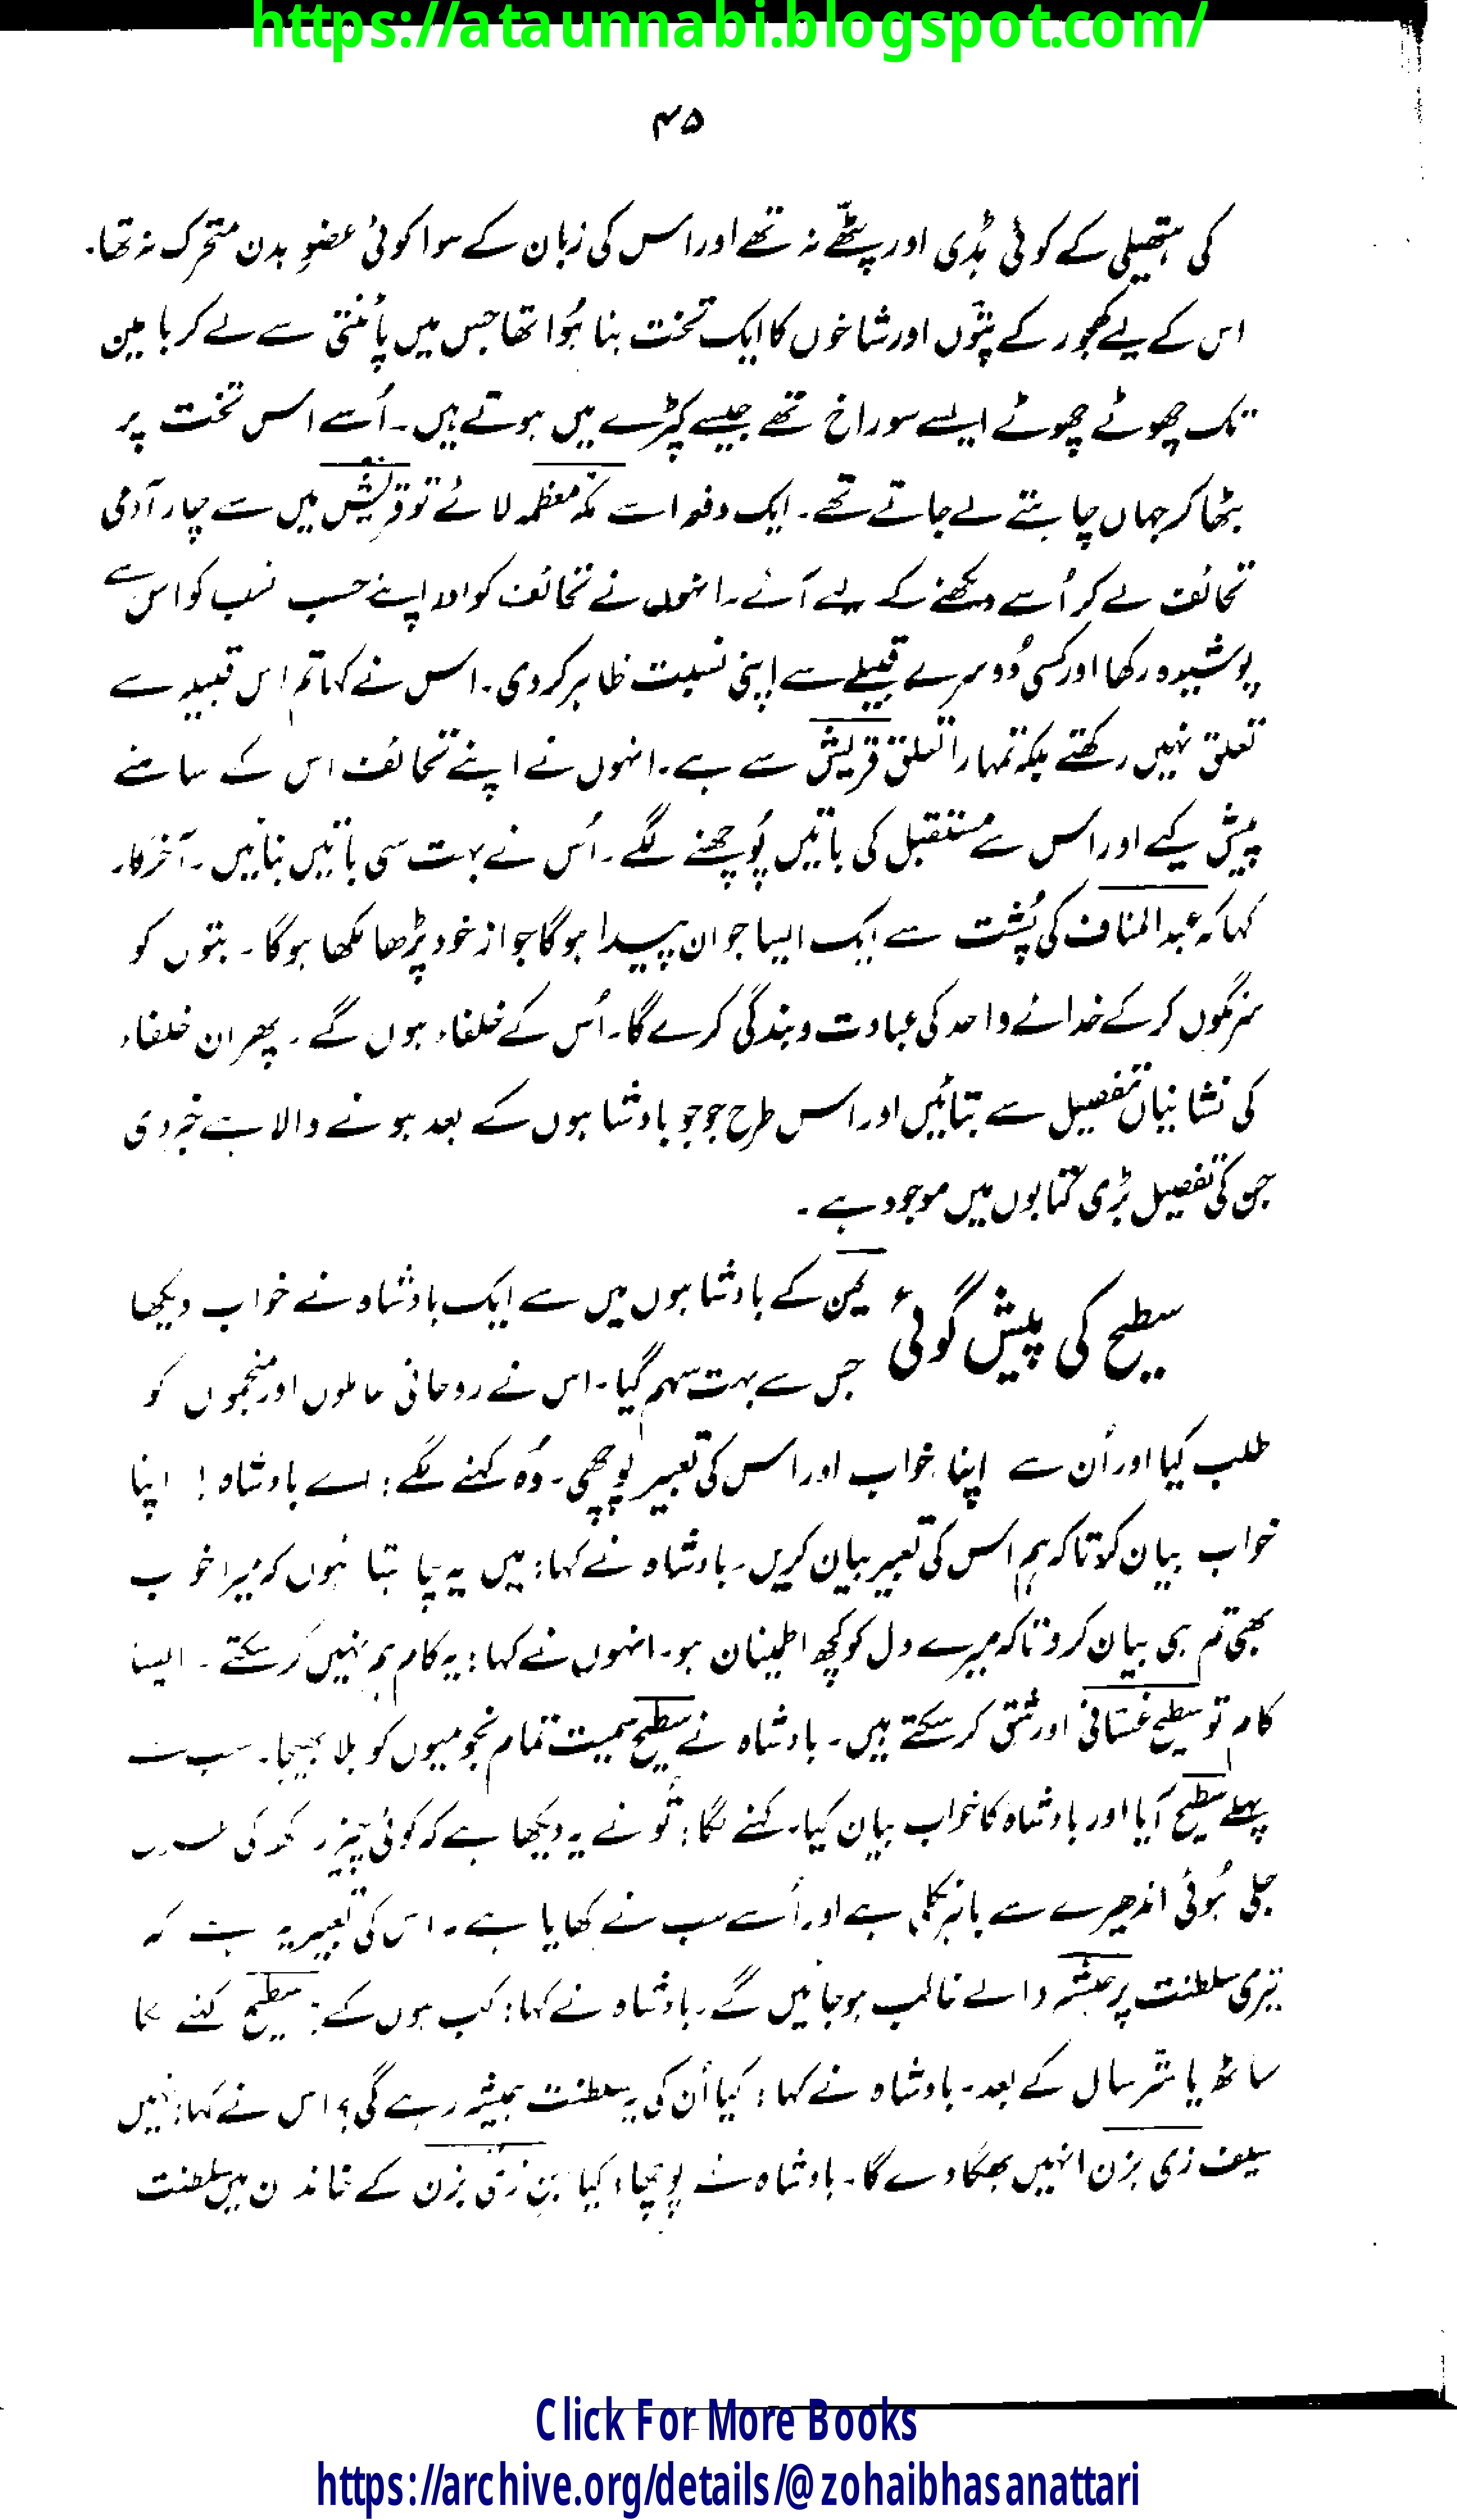 https://ataunnabi.blogspot.com/
۴۵
کی ہتھیلی کے کوئی ہڈی اور پٹھے نہ تھے اور اس کی زبان کے سوا کوئی عضوِ بدن متحرک نہ تھا۔
اس کے لیے کھجور کے پتّوں اور شاخوں کا ایک تخت بنا ہُوا تھا جس میں پائنتی سے لے کر بالین
تک چھوٹے چھوٹے ایسے سوراخ تھے جیسے کپڑے میں ہوتے ہیں۔ اُسے اس تخت پر
بٹھا کر جہاں چاہتے لے جاتے تھے۔ ایک دفعہ اسے مکہ معظمہ لائے تو قریش میں سے چار آدمی
تحائف لے کر اُسے دیکھنے کے لیے آئے۔ انہوں نے تحائف کو اور اپنے حسب نسب کو اس سے
پوشیدہ رکھا اور کسی دُوسرے قبیلے سے اپنی نسبت ظاہر کر دی۔ اس نے کہا تم اس قبیلہ سے
تعلق نہیں رکھتے بلکہ تمہارا تعلق قریش سے ہے۔ انہوں نے اپنے تحائف اس کے سامنے
پیش کیے اور اس سے مستقبل کی باتیں پُوچھنے لگے۔ اُس نے بہت سی باتیں بتائیں۔ آخرکار
کہا کہ عبد المناف کی پُشت سے ایک ایسا جوان پیدا ہوگا جو از خود پڑھا لکھا ہوگا۔ بتوں کو
سرنگوں کر کے خدائے واحد کی عبادت و بندگی کرے گا۔ اُس کے خلفاء ہوں گے۔ پھر ان خلفاء
کی نشانیاں تفصیل سے بتائیں اور اس طرح جو جو بادشاہوں کے بعد ہونے والا ہے خبر دی
جس کی تفصیل بڑی کتابوں میں موجود ہے۔
سطیح کی پیش گوئی
یمن کے بادشاہوں میں سے ایک بادشاہ نے خواب دیکھا
جس سے بہت سہم گیا۔ اس نے روحانی عاملوں اور منجموں کو
طلب کیا اور اُن سے اپنا خواب اور اس کی تعبیر پوچھی۔ وُہ کہنے لگے: اے بادشاہ! اپنا
خواب بیان کرو تاکہ ہم اس کی تعبیر بیان کریں۔ بادشاہ نے کہا: میں یہ چاہتا ہُوں کہ میرا خواب
بھی تم ہی بیان کرو تاکہ میرے دل کو کچھ اطمینان ہو۔ انہوں نے کہا: یہ کام ہم نہیں کر سکتے۔ ایسا
کام تو سطیح غسّانی اور شق کر سکتے ہیں۔ بادشاہ نے سطیح سمیت تمام نجومیوں کو بلا بھیجا۔ سب سے
پہلے سطیح آیا اور بادشاہ کا خواب بیان کیا۔ کہنے لگا: تُو نے یہ دیکھا ہے کہ کوئی چیز راکھ کی طرح
جلی ہُوئی اندھیرے سے باہر نکلی ہے اور اُسے سب نے کھایا ہے۔ اس کی تعبیر یہ ہے کہ
تیری سلطنت پر حبشہ والے غالب ہو جائیں گے۔ بادشاہ نے کہا: کب ہوں گے؟ سطیح کہنے لگا
ساٹھ یا ستّر سال کے بعد۔ بادشاہ نے کہا: کیا اُن کی یہ سلطنت ہمیشہ رہے گی؟ اس نے کہا: نہیں
سیف ذی یزن انہیں بھگا دے گا۔ بادشاہ نے پوچھا: کیا بن ذی یزن کے خاندان میں سلطنت
Click For More Books
https://archive.org/details/@zohaibhasanattari